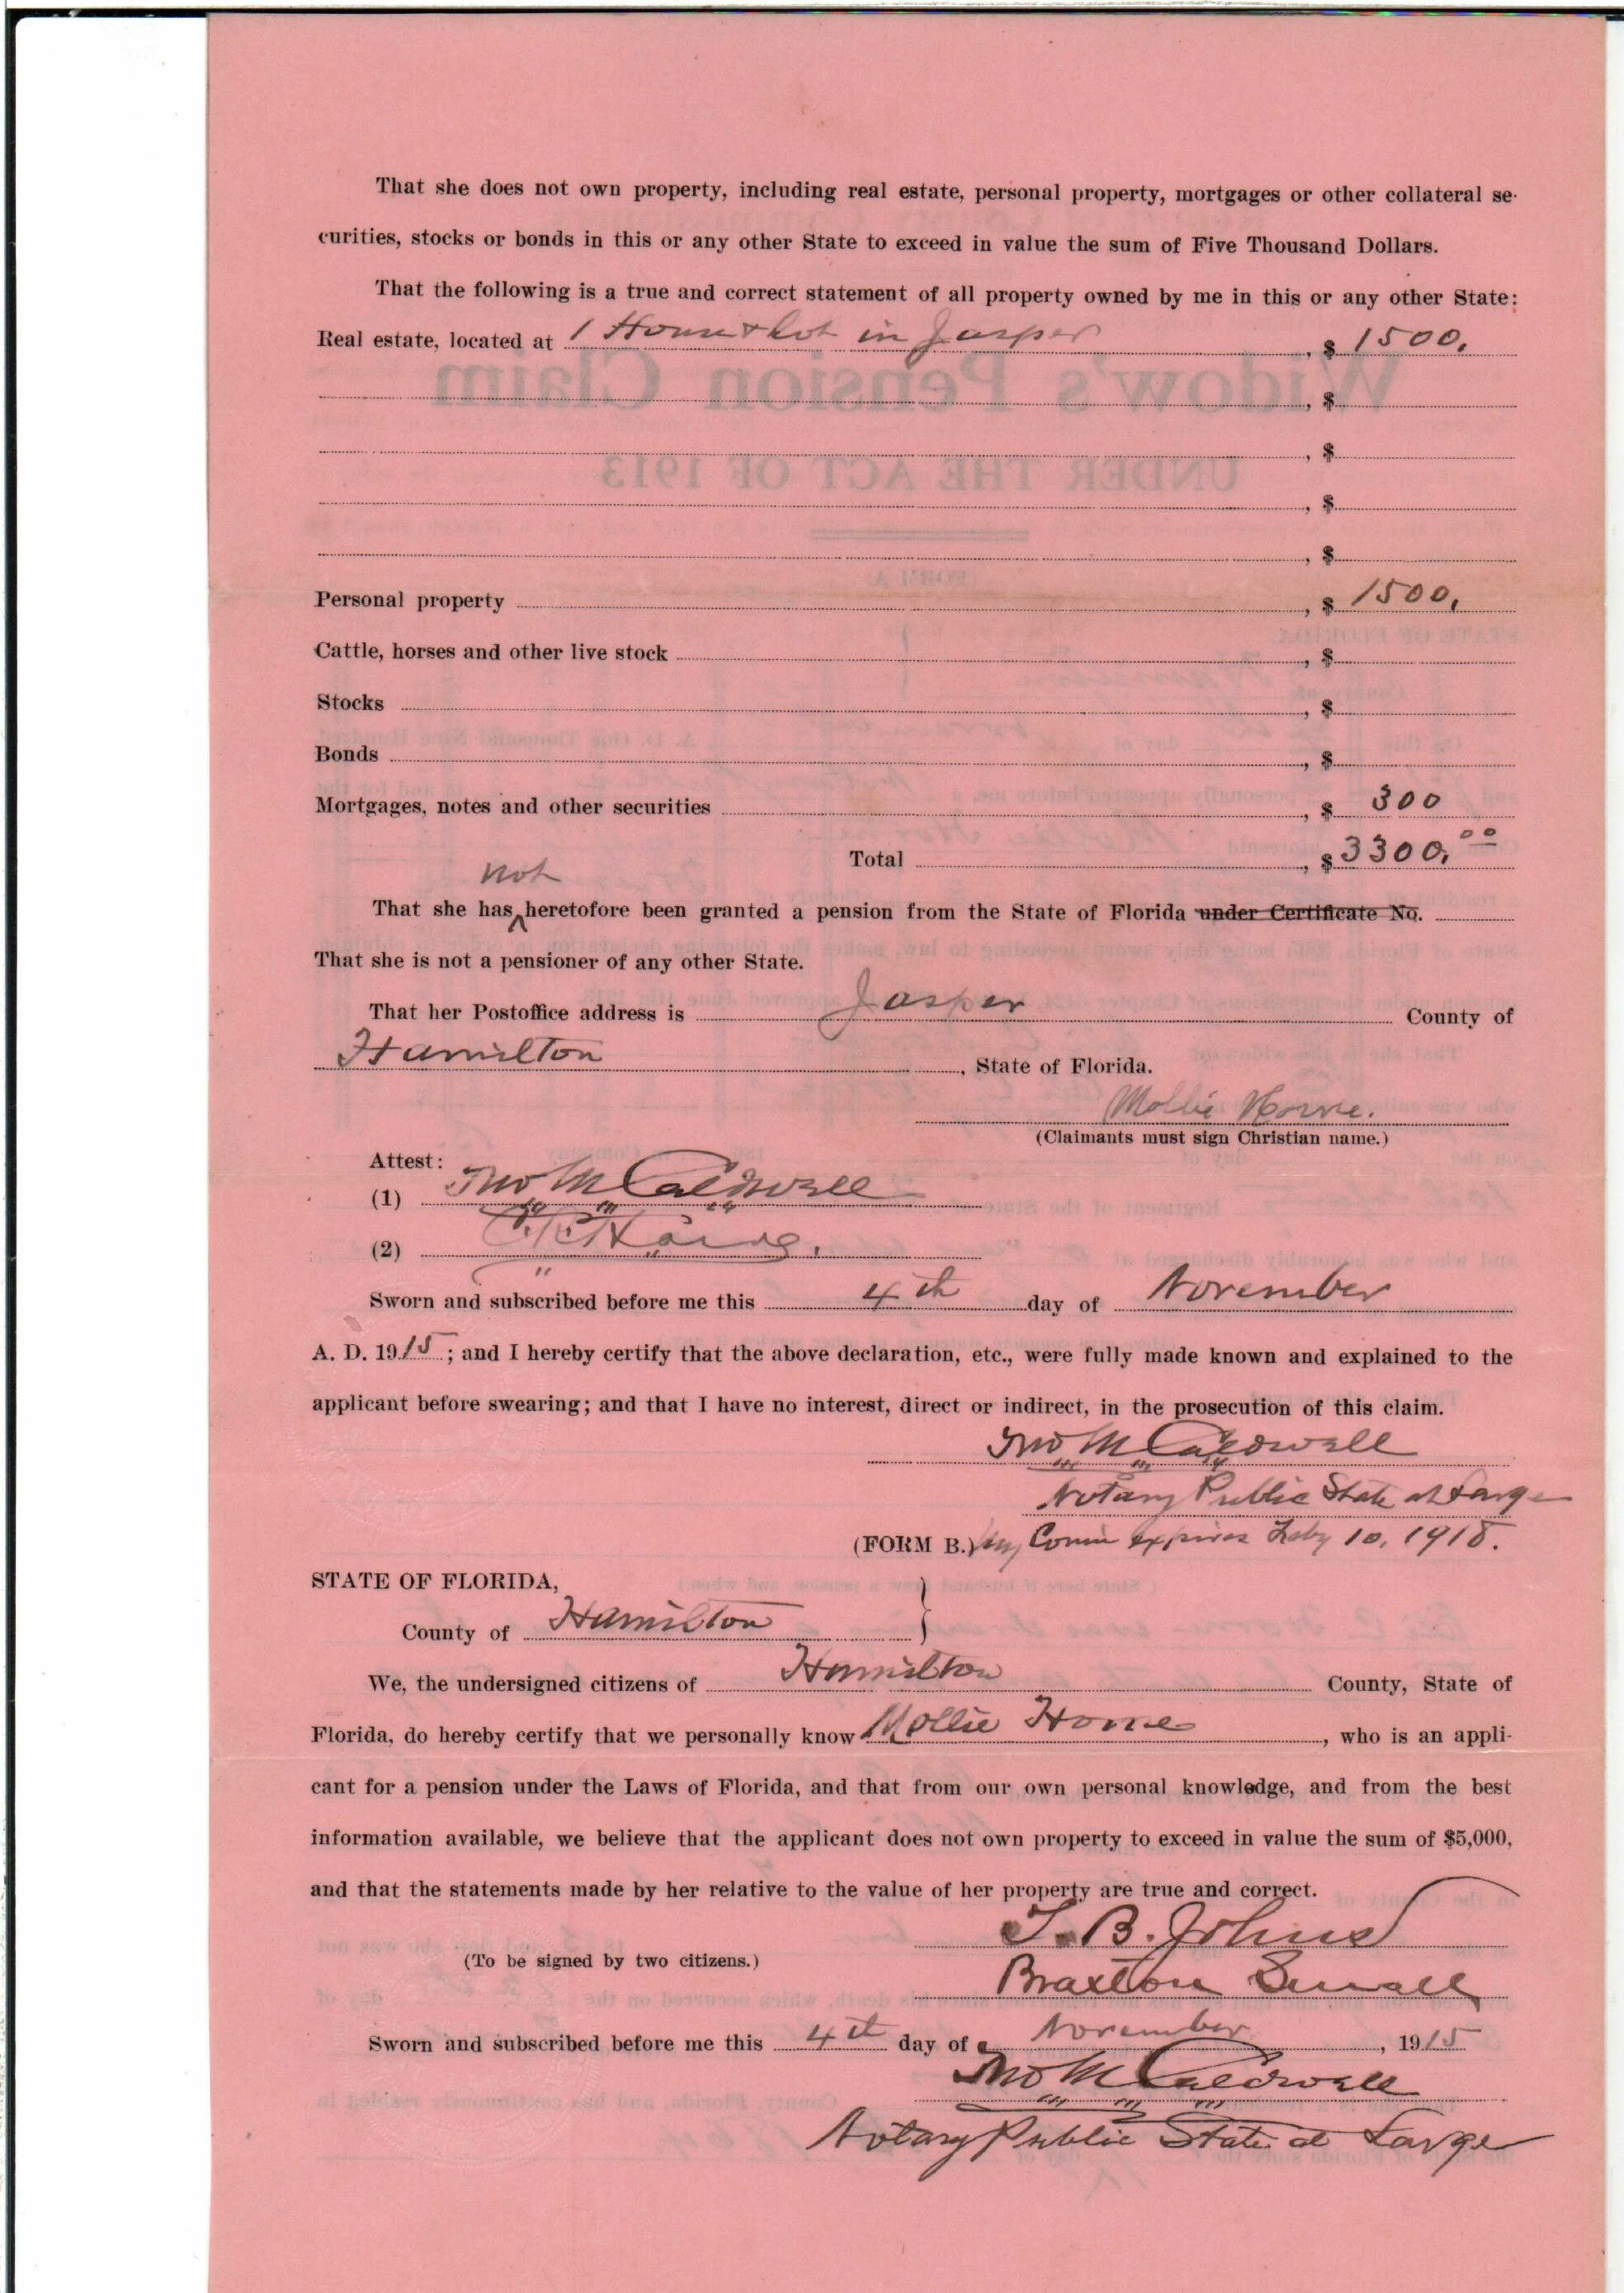 That she does not own property, including real estate, personal property, mortgages or other collateral se-
curities, stocks or bonds in this or any other State to exceed in value the sum of Five Thousand Dollars.
That the following is a true and correct statement of all property owned by me in this or any other State:
Real estate, located at 1 House & Lot in Jasper, $ 1500.
, $
, $
, $
, $
Personal property , $ 1500.
Cattle, horses and other live stock , $
Stocks , $
Bonds , $
Mortgages, notes and other securities , $ 300
Total , $ 3300.00
not
That she has ^ heretofore been granted a pension from the State of Florida under Certificate No.
That she is not a pensioner of any other State.
That her Postoffice address is Jasper County of
Hamilton , State of Florida.
Mollie Horne.
(Claimants must sign Christian name.)
Attest:
(1) Jno M Caldwell
(2)
Sworn and subscribed before me this 4th day of November
A. D. 1915; and I hereby certify that the above declaration, etc., were fully made known and explained to the
applicant before swearing; and that I have no interest, direct or indirect, in the prosecution of this claim.
Jno M Caldwell
Notary Public State at Large
(FORM B.) My Comm expires Feby 10, 1918.
STATE OF FLORIDA,
County of Hamilton }
We, the undersigned citizens of Hamilton County, State of
Florida, do hereby certify that we personally know Mollie Horne , who is an appli-
cant for a pension under the Laws of Florida, and that from our own personal knowledge, and from the best
information available, we believe that the applicant does not own property to exceed in value the sum of $5,000,
and that the statements made by her relative to the value of her property are true and correct.
J. B. Johns
(To be signed by two citizens.)
Braxton Small
Sworn and subscribed before me this 4th day of November , 1915
Jno M Caldwell
Notary Public State at Large